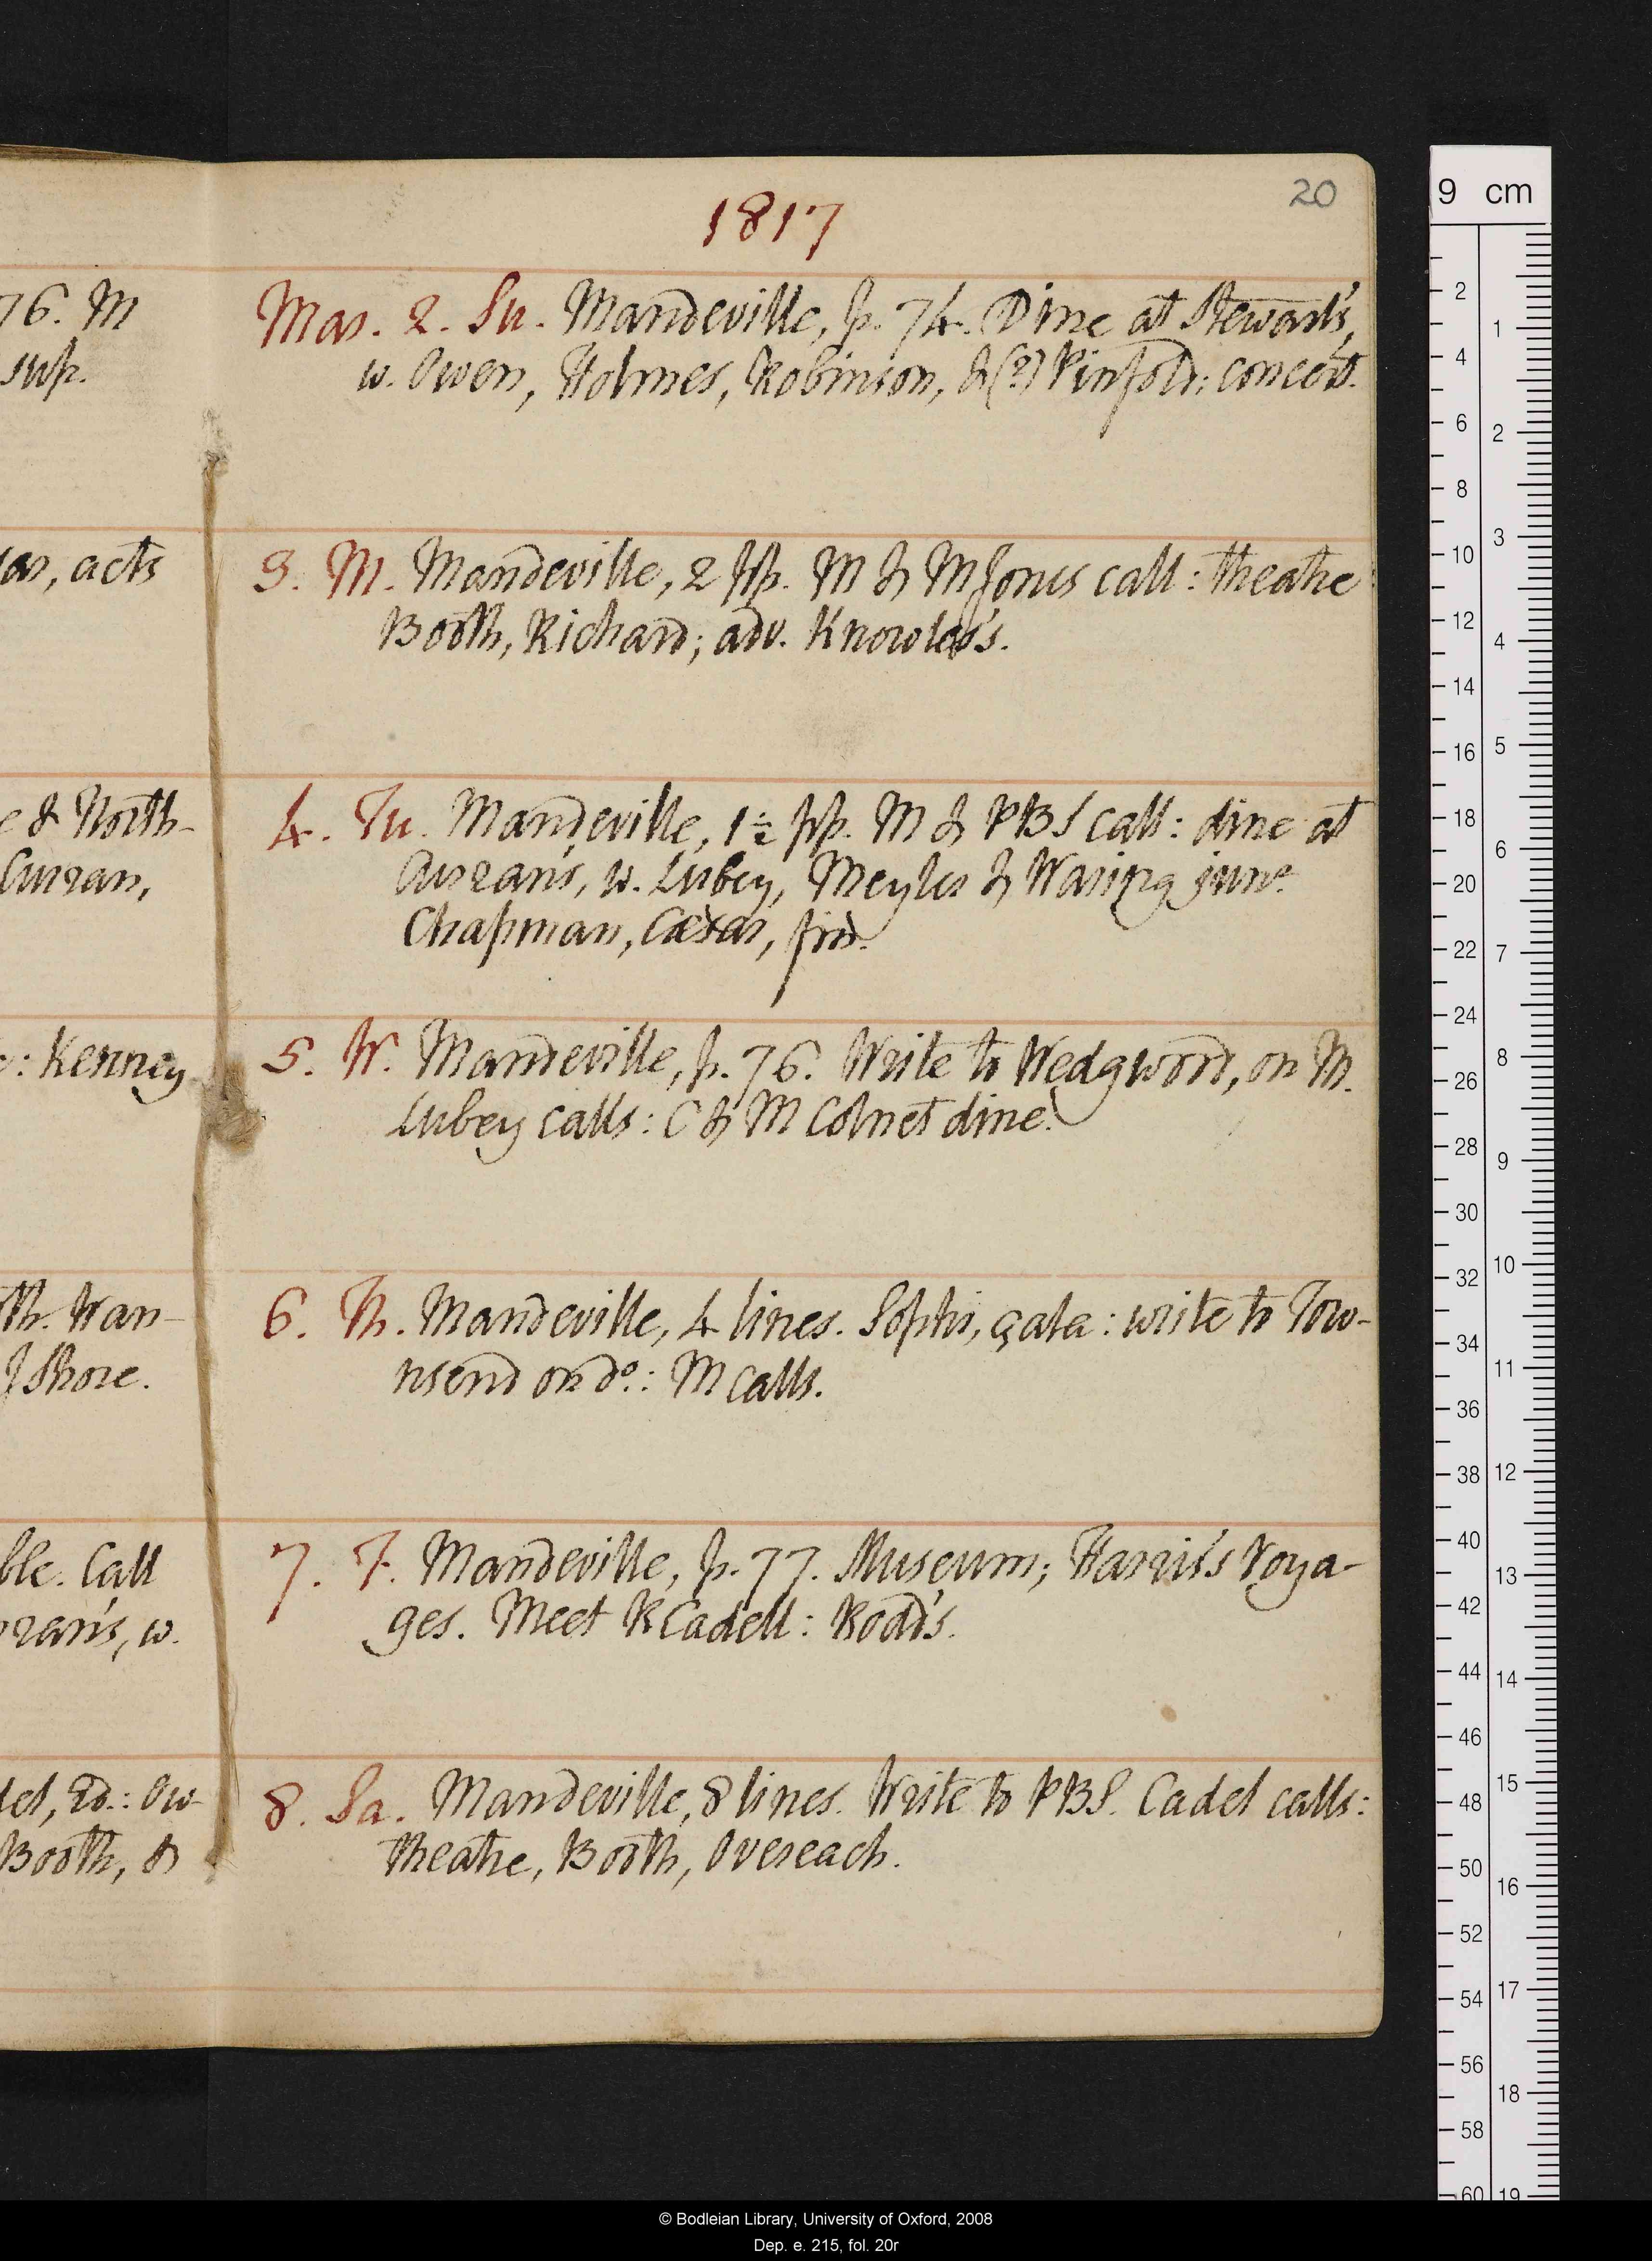 20
1817
76. M
sup.
Mar. 2. Su. Mandeville, p. 74. Dine at Stewart's,
w. Owen, Holmes, Robinson, & (2) Pinfold; concert.
ar, acts
3. M. Mandeville, 2 pp. M & M Jones call: theatre
Booth, Richard; adv. Knowles's.
e & North-
Curran,
4. Tu. Mandeville, 1½ pp. M & PBS call: dine at
Curran's, w. Lubey, Meyler & Waring junr.
Chapman, Cæsar, fin.
: Kenney
5. W. Mandeville, p. 76. Write to Wedgwood, on M.
Lubey calls: C & M Colnet dine.
th. Wan-
J Shore.
6. Th. Mandeville, 4 lines. Sophis, çala: write to Tow-
nsend on do.: M calls.
ble. Call
rran's, w.
7. F. Mandeville, p. 77. Museum; Harris's Voya-
ges. Meet R Cadell: Rodd's.
del, 2d.: Ow-
Booth, &
8. Sa. Mandeville, 8 lines. Write to PBS. Cadel calls:
theatre, Booth, Overeach.
9 cm
2 4 6 8 10 12 14 16 18 20 22 24 26 28 30 32 34 36 38 40 42 44 46 48 50 52 54 56 58 60
1 2 3 4 5 6 7 8 9 10 11 12 13 14 15 16 17 18 19
© Bodleian Library, University of Oxford, 2008
Dep. e. 215, fol. 20r